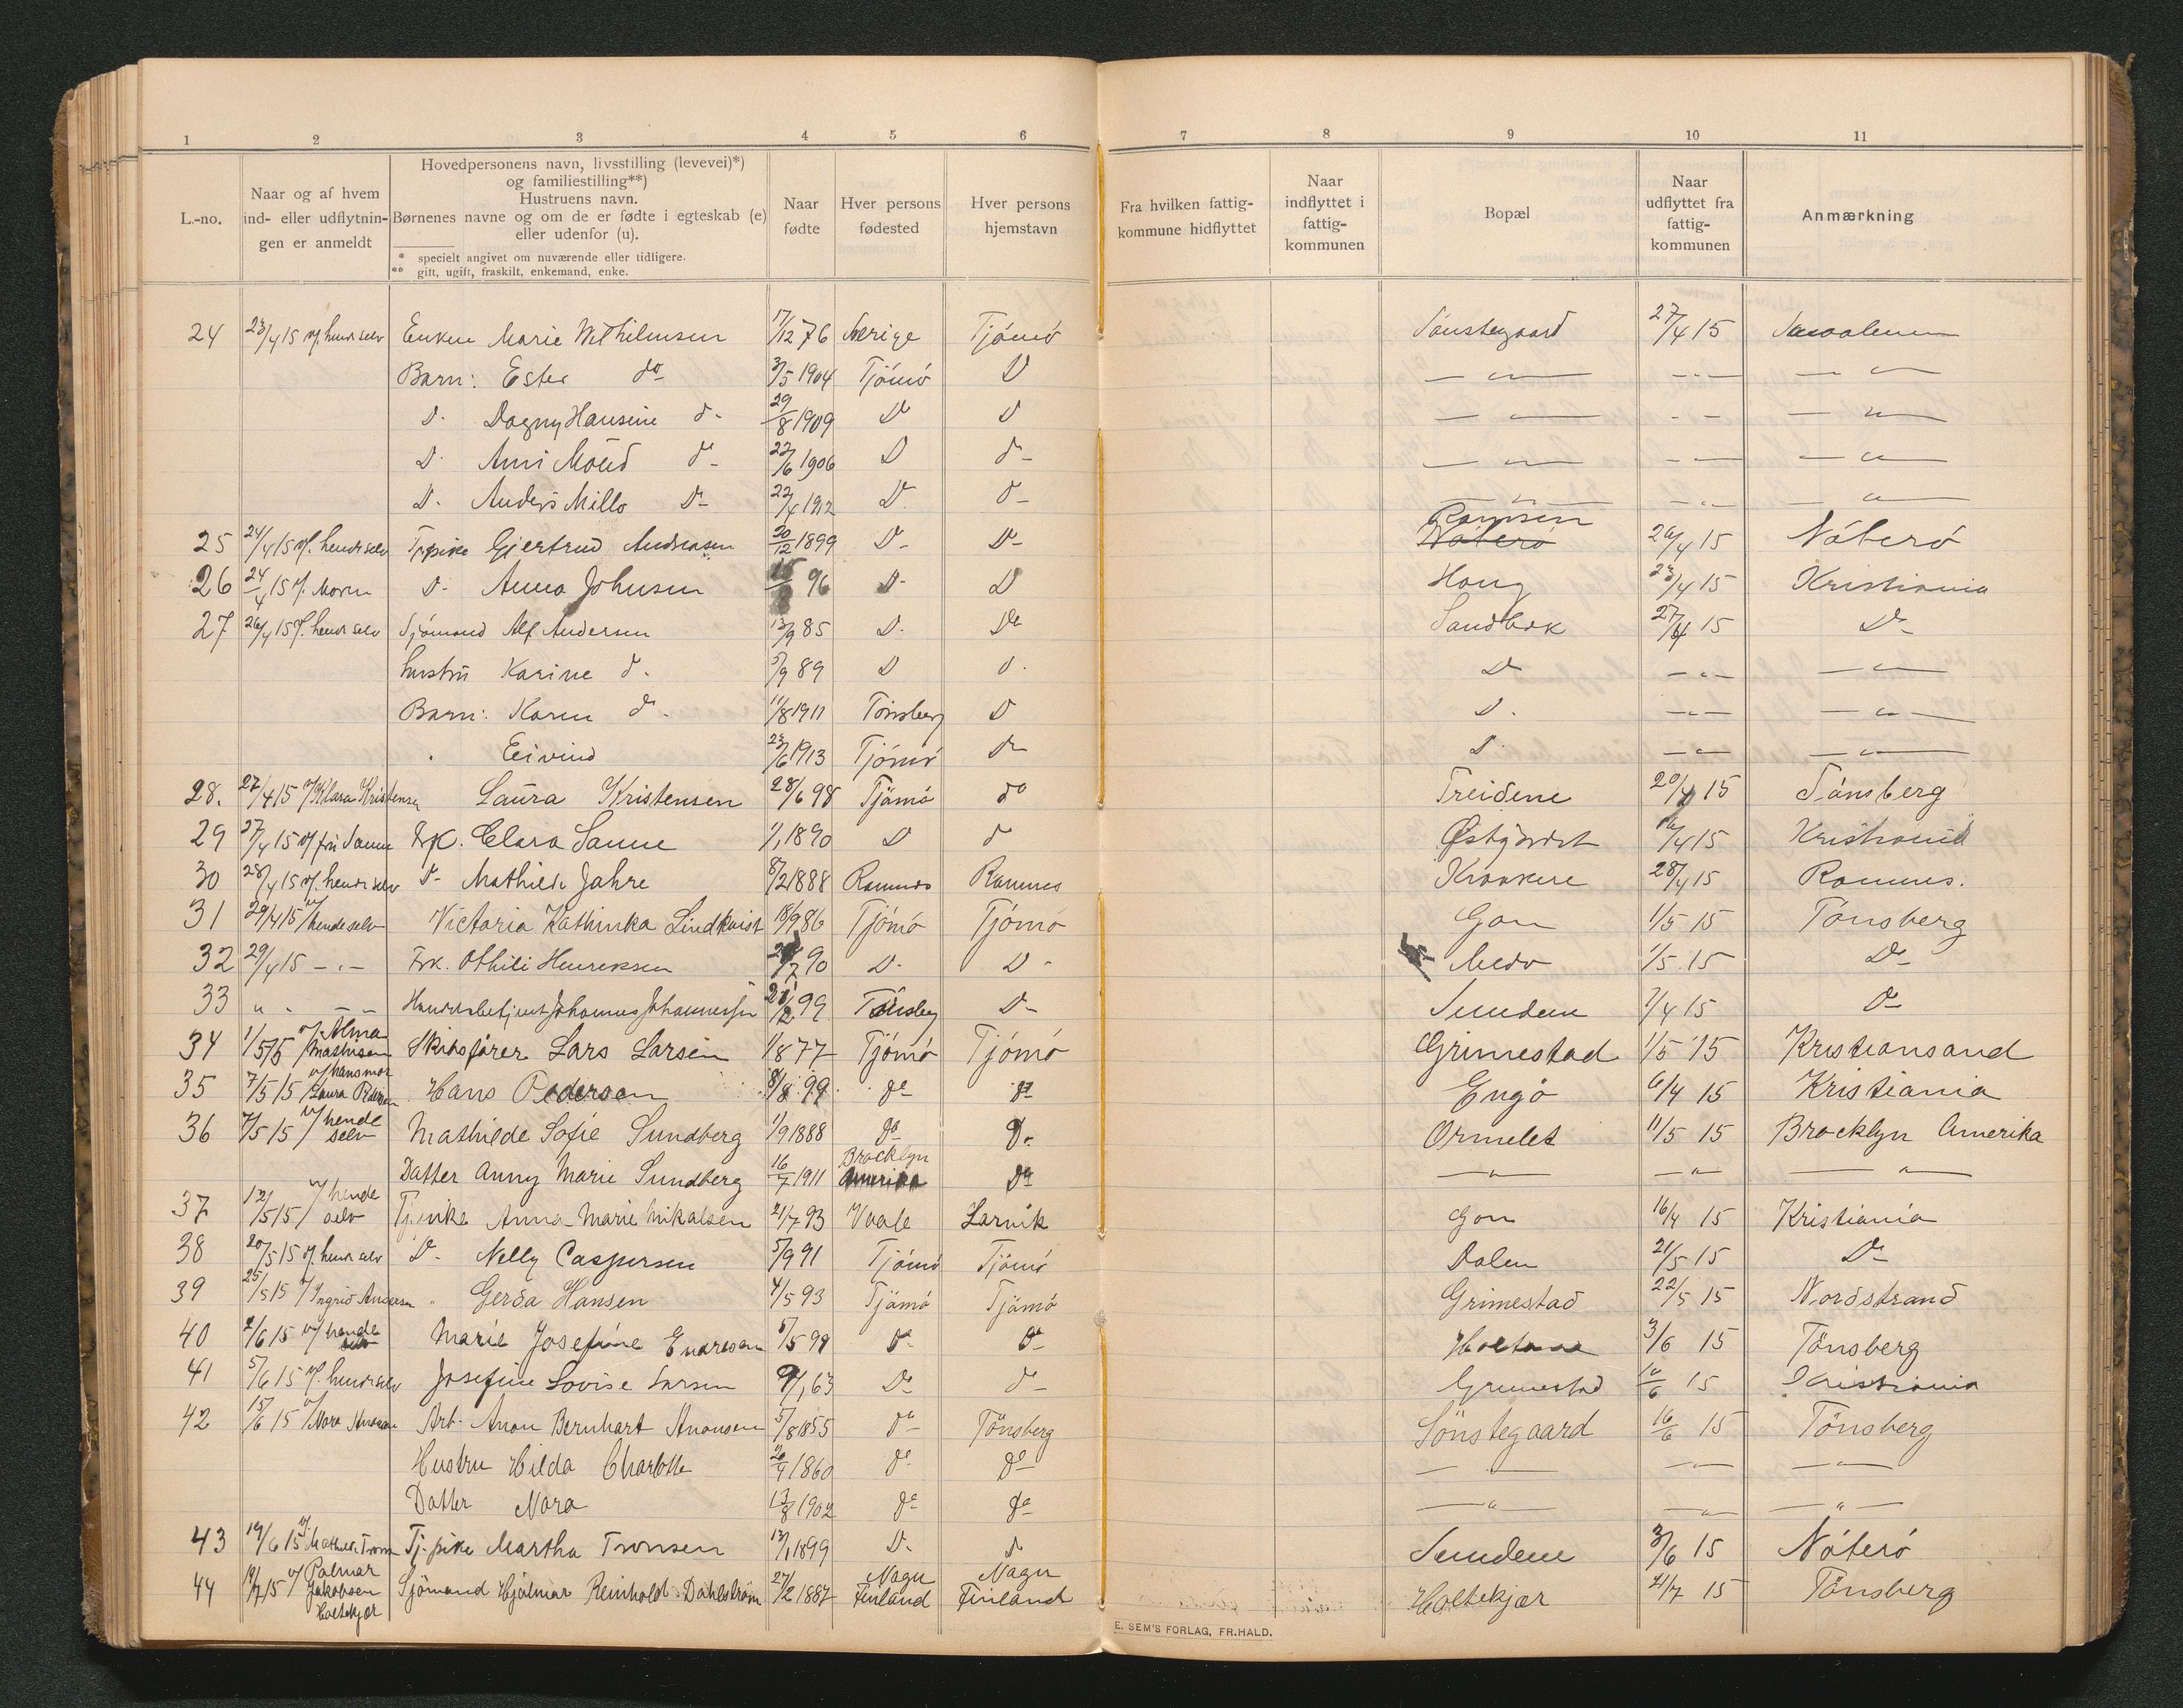 1 2 3 4 5 6 7 8 9 10 11
L.-no.
Naar og af hvem
ind- eller udflytnin-
gen er anmeldt
Hovedpersonens navn, livsstilling (levevei)*)
og familiestilling**)
Hustruens navn.
Børnenes navne og om de er fødte i egteskab (e)
eller udenfor (u).
* specielt angivet om nuværende eller tidligere.
** gift, ugift, fraskilt, enkemand, enke.
Naar
fødte
Hver persons
fødested
Hver persons
hjemstavn
Fra hvilken fattig-
kommune hidflyttet
Naar
indflyttet i
fattig-
kommunen
Bopæl
Naar
udflyttet fra
fattig-
kommunen
Anmærkning
24 23/4 15 v/ hende selv Enken Marie Wilhelmsen 17/12 76 Sverige Tjömö Sönstegaard 27/4 15
Barn: Ester do 3/5 1904 Tjömö D — " — — " — — " —
D. Dagny Hansine d- 29/8 1909 D D — " — - - — " —
D. Anni Moud d- 22/6 1906 D d- — " — — " — — " —
D. Anders Millo D- 22/4 1912 D. d- — " — — " — — " —
25 24/4 15 v/ hende selv Tjpike Gjertrud Andreasen 20/12 1899 D- D- Ramsen Nöterö 26/4 15 Nöterö
26 24/4 15 v/ Moren D. Anna Johnsen 96 D- D Haug 23/4 15 Kristiania
27 26/4 15 v/ hende selv Sjömand Alf Andersen 13/9 85 D. Do Sandbæk 27/4 15 D-
hustru Karine d. 5/9 89 D d. D — " — — " —
Barn: Karen d. 11/8 1911 Tönsberg D D. — " — — " —
" Eivind 23/6 1913 Tjömö D- D. — " — — " —
28. 27/4 15 v/ Klara Kristensen Laura Kristensen 28/6 98 Tjömö do Treidene 20/4 15 Tönsberg
29 27/4 15 v/ fru Sanne Frk. Clara Sanne 1/1 1890 D d Østgårdet /4 15 Kristiania
30 28/4 15 v/ hende selv D- Mathilde Jahre 8/2 1888 Ramnes Ramnes Kraakere 28/4 15 Ramnes.
31 29/4 15 v/ hende selv Victoria Kathinka Lindkvist 18/9 86 Tjömö Tjömö Gon 1/5 15 Tönsberg
32 29/4 15 - " - Frk. Othili Henriksen /7 90 D- D- Medö 1/5 15 D-
33 " " - - Handelsbetjent Johannes Johannessen 21/12 99 Tönsberg D- Sundene 1/4 15 D-
34 1/5 15 v/ Alma Mathisen Skibsfører Lars Larsen 1/8 77 Tjömö Tjömö Grimestad 1/5 15 Kristiansand
35 7/5 15 v/ hans mor Laura Pedersen Hans Pedersen 8/8 99 do do Engö 6/4 15 Kristiania
36 7/5 15 v/ hende selv Mathilde Sofie Sundberg 1/9 1888 do Do Ormelet 11/5 15 Brocklyn Amerika
Datter Anny Marie Sundberg 16/7 1911 Brocklyn Amerika Do — " — — " — — " —
37 12/5 15 v/ hende selv Tjpike Anna Marie Nikalsen 21/7 93 Vaale Larvik Gon 16/4 15 Kristiania
38 20/5 15 v/ hende selv D- Nelly Caspersen 5/9 91 Tjömö Tjömö Dalen 21/5 15 D-
39 25/5 15 v/ Ingrid Andersen " Gerda Hansen 4/5 93 Tjömö Tjömö Grimestad 22/5 15 Nordstrand
40 2/6 15 v/ hende selv Marie Josefine Evaresen 5/5 99 Do Do 3/6 15 Tönsberg
41 5/6 15 v/ hende selv Josefine Lovise Larsen /1 63 D- d- Grimestad 10/6 15 Kristiania
42 15/6 15 v/ Nora Anonsen Arb. Anon Bernhart Anonsen 5/8 1855 do Tönsberg Sönstegaard 16/6 15 Tönsberg
Hustru Hilda Charlotte 20/9 1860 do do — — — " — — " —
Datter Nora 13/8 1902 do do — " — — " — — " —
43 19/6 15 v/ Mathilde Tronsen Tj-pike Martha Tronsen 13/1 1899 D. d Sundene 3/6 15 Nöterö
44 19/7 15 v/ Palmar Jakobsen Holtekjær Sjömand Hjalmar Reinholdt Dahlström 27/2 1887 Nagu Finland Nagu Finland Holtekjær 21/7 15 Tönsberg
E. SEM'S FORLAG, FR.HALD.